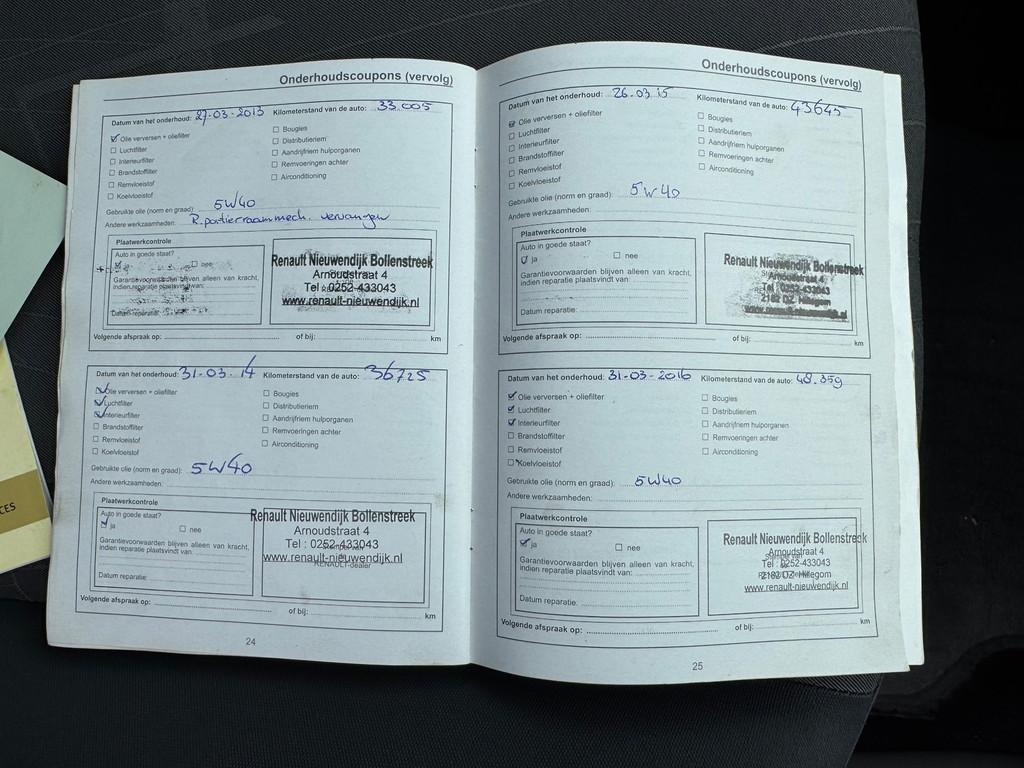 Onderhoudscoupons (vervolg)
Datum van het onderhoud: 27-03-2013 Kilometerstand van de auto: 33.005
Olie verversen + oliefilter
Luchtfilter
Interieurfilter
Brandstoffilter
Remvloeistof
Koelvloeistof
Bougies
Distributieriem
Aandrijfriem hulporganen
Remvoeringen achter
Airconditioning
Gebruikte olie (norm en graad): 5W40
Andere werkzaamheden: R. portierraammech. vervangen
Plaatwerkcontrole
Auto in goede staat?
ja nee
Garantievoorwaarden blijven alleen van kracht,
indien reparatie plaatsvindt van:
Datum reparatie:
Renault Nieuwendijk Bollenstreek
Arnoudstraat 4
Tel : 0252-433043
www.renault-nieuwendijk.nl
Volgende afspraak op: of bij: km
Datum van het onderhoud: 31-03-14 Kilometerstand van de auto: 36725
Olie verversen + oliefilter
Luchtfilter
Interieurfilter
Brandstoffilter
Remvloeistof
Koelvloeistof
Bougies
Distributieriem
Aandrijfriem hulporganen
Remvoeringen achter
Airconditioning
Gebruikte olie (norm en graad): 5W40
Andere werkzaamheden:
Plaatwerkcontrole
Auto in goede staat?
ja nee
Garantievoorwaarden blijven alleen van kracht,
indien reparatie plaatsvindt van:
Datum reparatie:
Renault Nieuwendijk Bollenstreek
Arnoudstraat 4
Tel : 0252-433043
www.renault-nieuwendijk.nl
RENAULT-dealer
Volgende afspraak op: of bij: km
24
Onderhoudscoupons (vervolg)
Datum van het onderhoud: 26.03.15 Kilometerstand van de auto: 43645
Olie verversen + oliefilter
Luchtfilter
Interieurfilter
Brandstoffilter
Remvloeistof
Koelvloeistof
Bougies
Distributieriem
Aandrijfriem hulporganen
Remvoeringen achter
Airconditioning
Gebruikte olie (norm en graad): 5W40
Andere werkzaamheden:
Plaatwerkcontrole
Auto in goede staat?
ja nee
Garantievoorwaarden blijven alleen van kracht,
indien reparatie plaatsvindt van:
Datum reparatie:
Renault Nieuwendijk Bollenstreek
Arnoudstraat 4
Tel : 0252-433043
2182 DZ Hillegom
www.renault-nieuwendijk.nl
Volgende afspraak op: of bij: km
Datum van het onderhoud: 31-03-2016 Kilometerstand van de auto: 48.359
Olie verversen + oliefilter
Luchtfilter
Interieurfilter
Brandstoffilter
Remvloeistof
Koelvloeistof
Bougies
Distributieriem
Aandrijfriem hulporganen
Remvoeringen achter
Airconditioning
Gebruikte olie (norm en graad): 5W40
Andere werkzaamheden:
Plaatwerkcontrole
Auto in goede staat?
ja nee
Garantievoorwaarden blijven alleen van kracht,
indien reparatie plaatsvindt van:
Datum reparatie:
Renault Nieuwendijk Bollenstreek
Arnoudstraat 4
Tel : 0252-433043
2182 DZ Hillegom
www.renault-nieuwendijk.nl
Volgende afspraak op: of bij: km
25
CES